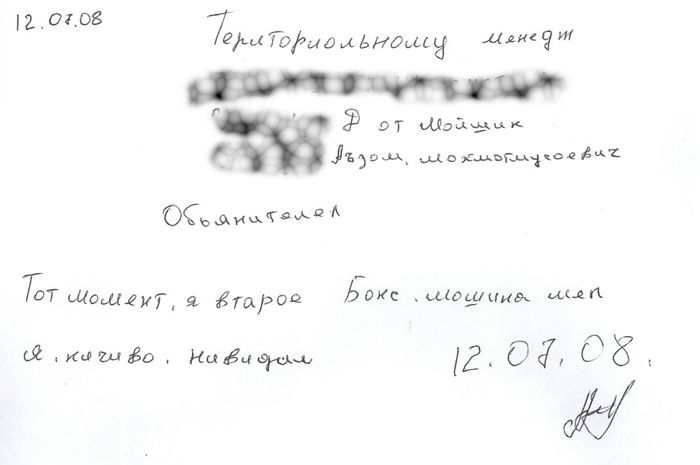 12.07.08
Териториольному менедж
Д от Мойшик
Аъзом, мохмотмусоевич
Обьянителел
Тот момент, я второе Бокс. мошина мел
я. ничиво. нивидал
12.07.08.